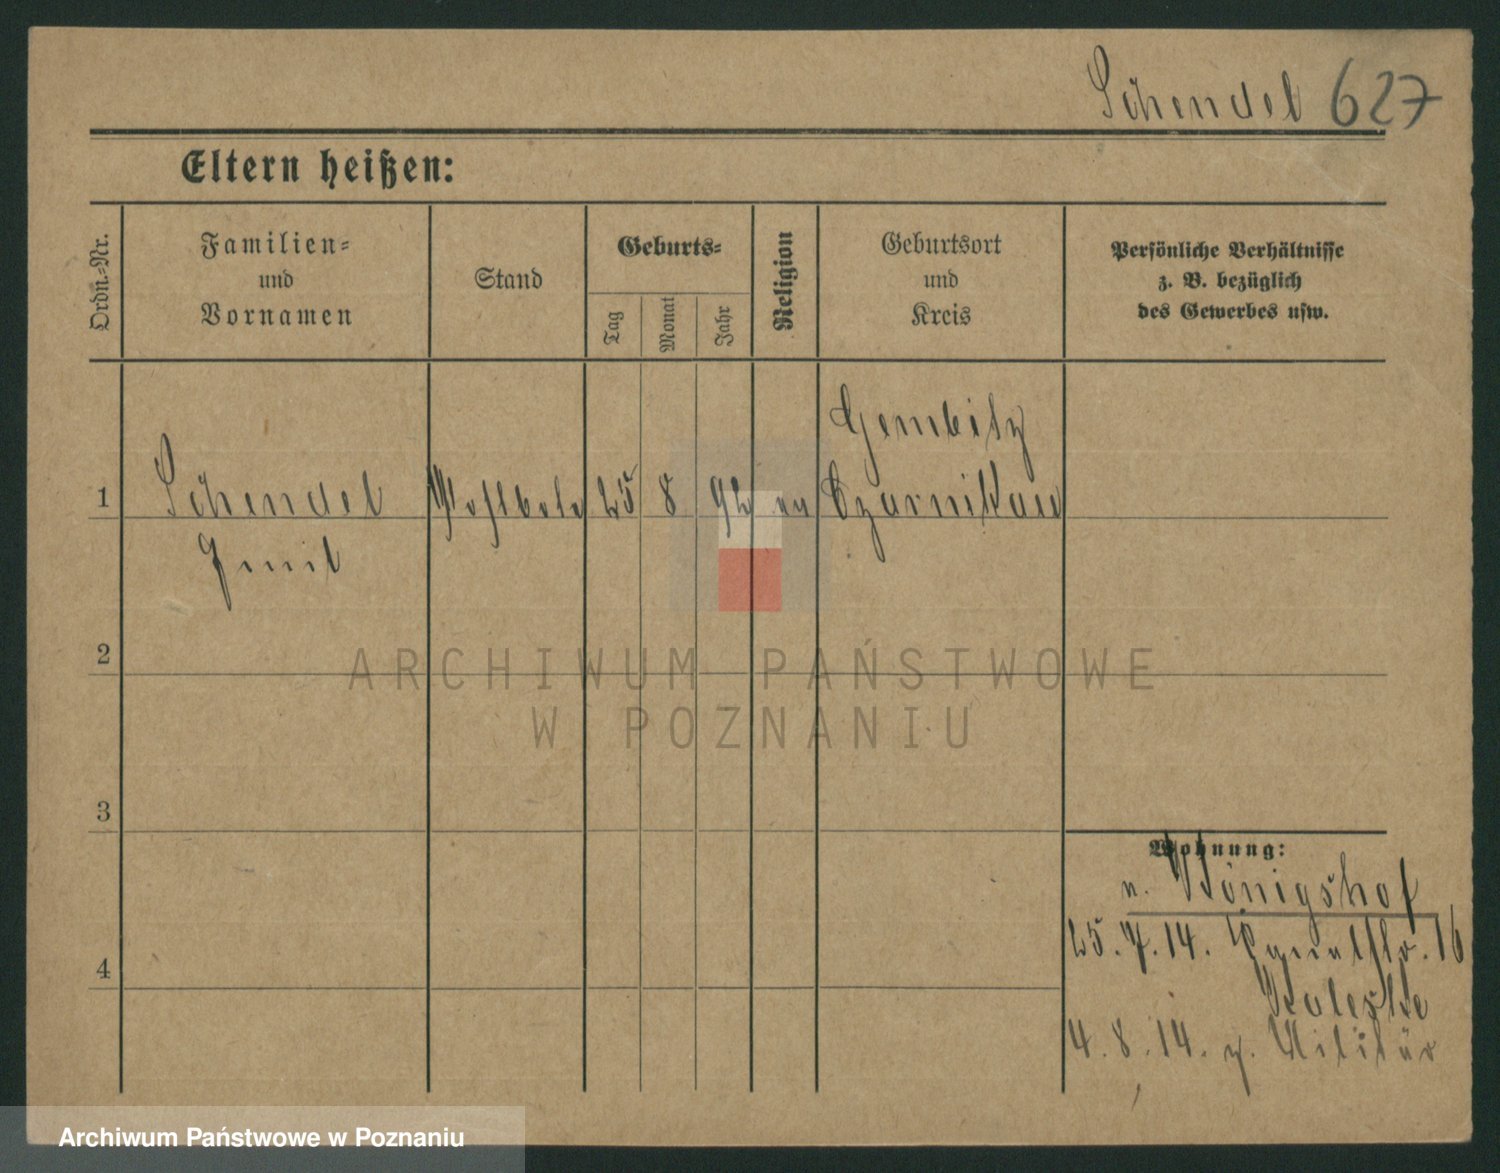 Schendel 627
Eltern heißen:
Ordn.-Nr.
Familien-
und
Vornamen
Stand
Geburts-
Tag
Monat
Jahr
Religion
Geburtsort
und
Kreis
Persönliche Verhältnisse
z. B. bezüglich
des Gewerbes usw.
Gembitz
1 Schendel 25 8 92 ev Czarnikau
Emil
2
ARCHIWUM PAŃSTWOWE
W POZNANIU
3
Wohnung:
n. Königshof
25. 7. 14. 16
4
4. 8. 14. z. Militär
Archiwum Państwowe w Poznaniu